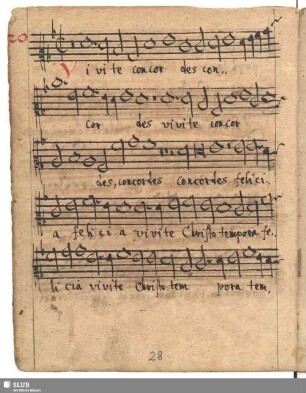 20
Vivite concor des con..
cor des vivite concor
des, concordes concordes felici..
a felicia vivite Christo tempora fe.
licia vivite Christo tem pora tem,
28
SLUB
Wir führen Wissen.